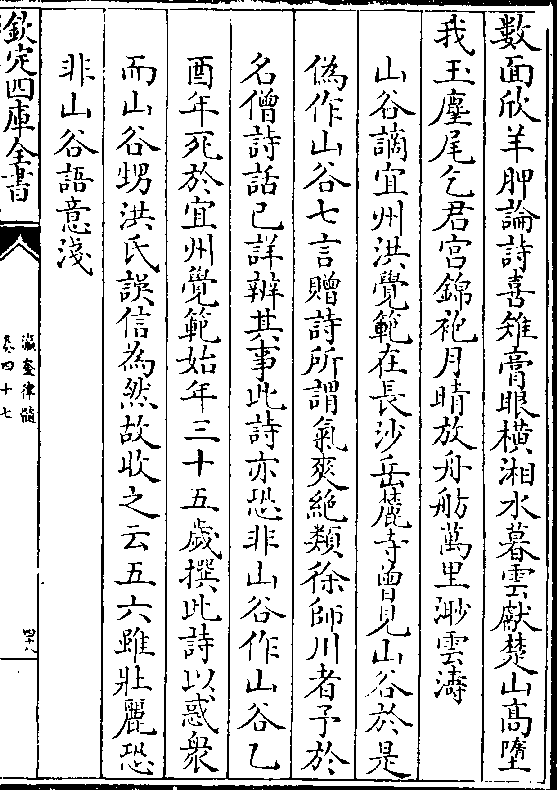 數面欣羊胛論詩喜雉膏眼橫湘水暮雲獻楚山髙墮
我玉麈尾乞君宫錦袍月晴放舟舫萬里渺雲濤
山谷謫宜州洪覺範在長沙岳麓寺曾見山谷於是
偽作山谷七言贈詩所謂氣爽絶類徐師川者予於
名僧詩話已詳辨其事此詩亦恐非山谷作山谷乙
酉年死於宜州覺範始年三十五歲撰此詩以惑衆
而山谷甥洪氏誤信為然故收之云五六雖壯麗恐
非山谷語意淺
欽定四庫全書
瀛奎律髓
卷四十七
四十八